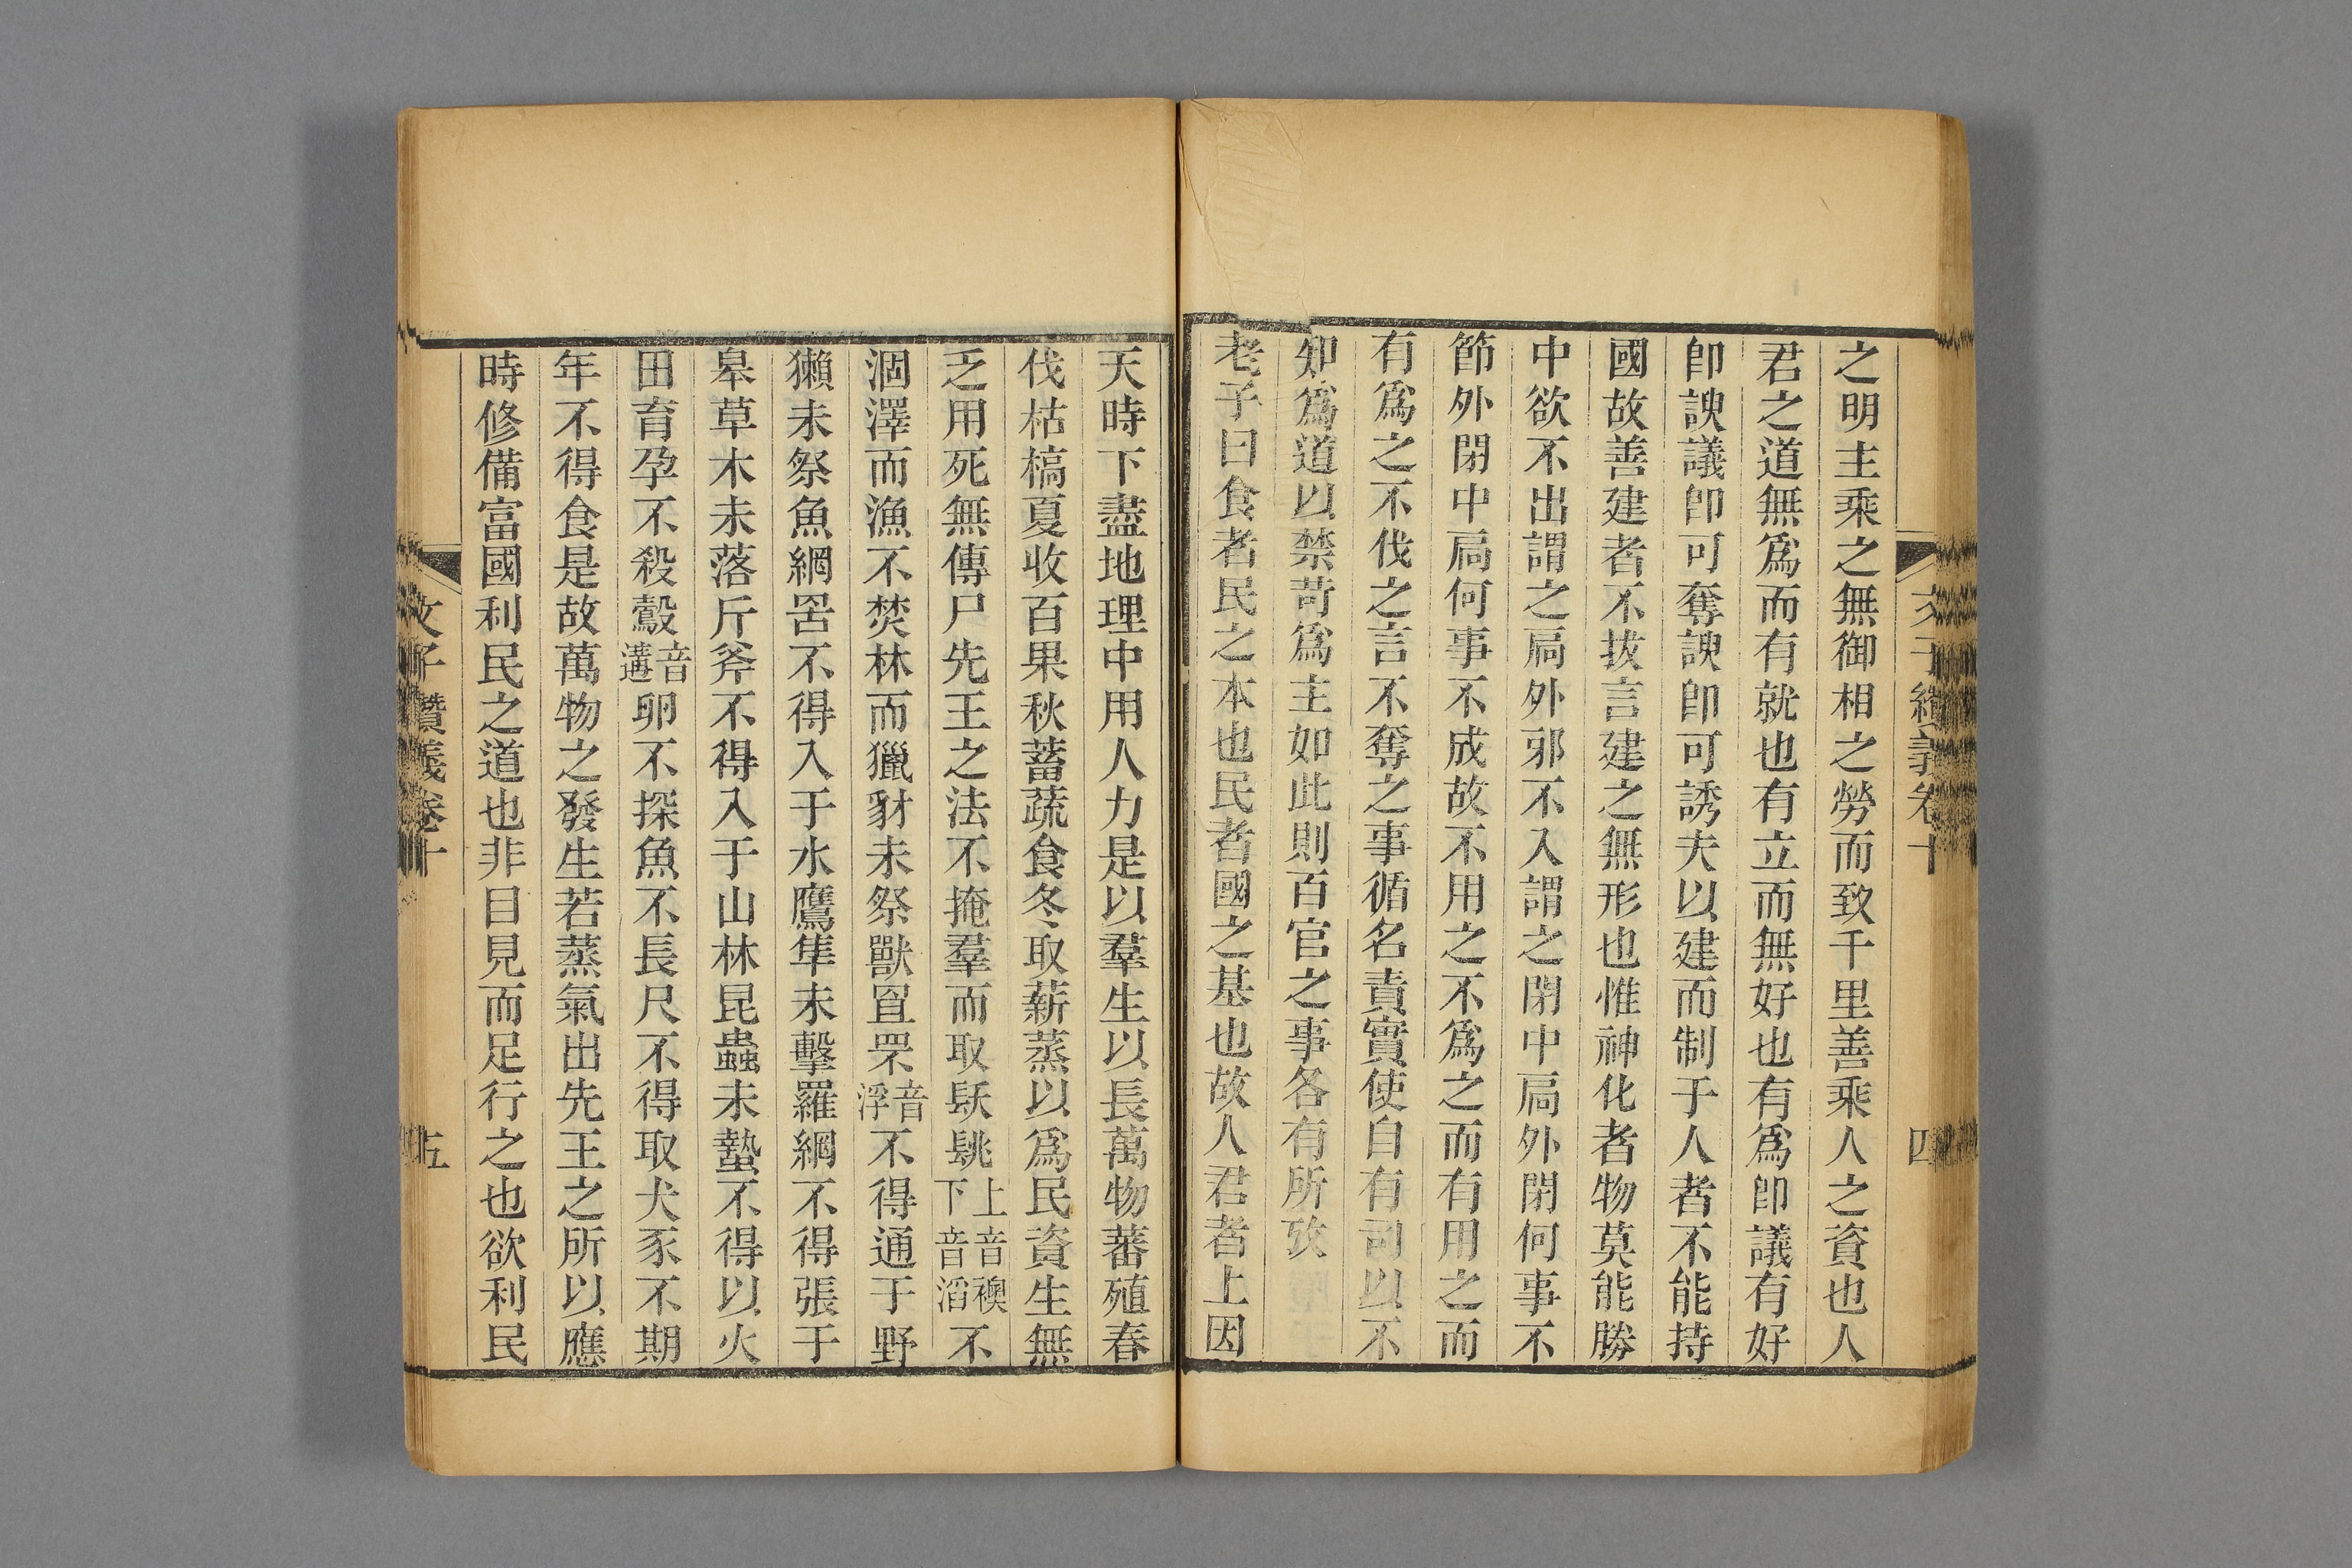 文子纘義卷十
四
之明主乘之無御相之勞而致千里善乘人之資也人
君之道無爲而有就也有立而無好也有爲卽議有好
卽諛議卽可奪諛卽可誘夫以建而制于人者不能持
國故善建者不拔言建之無形也惟神化者物莫能勝
中欲不出謂之扃外邪不入謂之閉中扃外閉何事不
節外閉中扃何事不成故不用之不爲之而有用之而
有爲之不伐之言不奪之事循名責實使自有司以不
知爲道以禁苛爲主如此則百官之事各有所攷
老子曰食者民之本也民者國之基也故人君者上因
天時下盡地理中用人力是以羣生以長萬物蕃殖春
伐枯槁夏收百果秋蓄蔬食冬取薪蒸以爲民資生無
乏用死無傳尸先王之法不掩羣而取镺䠷上音襖下音滔不
涸澤而漁不焚林而獵豺未祭獸罝罘音浮不得通于野
獺未祭魚網罟不得入于水鷹隼未擊羅網不得張于
皋草木未落斤斧不得入于山林昆蟲未蟄不得以火
田育孕不殺鷇音遘卵不探魚不長尺不得取犬豕不期
年不得食是故萬物之發生若蒸氣出先王之所以應
時修備富國利民之道也非目見而足行之也欲利民
文子纘義卷十
五